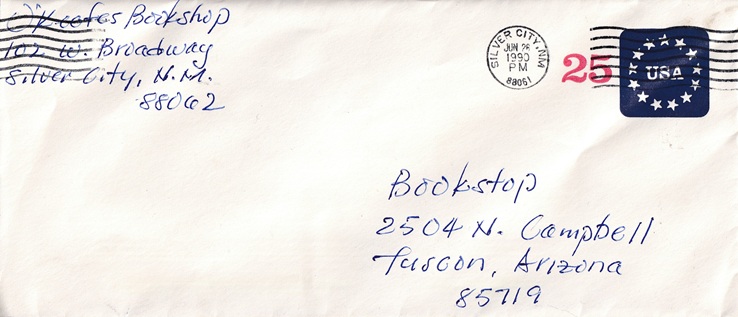 O'Keefes Bookshop
102 W. Broadway
Silver City, N.M.
88062
SILVER CITY, NM
JUN 26
1990
PM
88061
25
USA
Bookstop
2504 N. Campbell
Tuscon, Arizona
85719